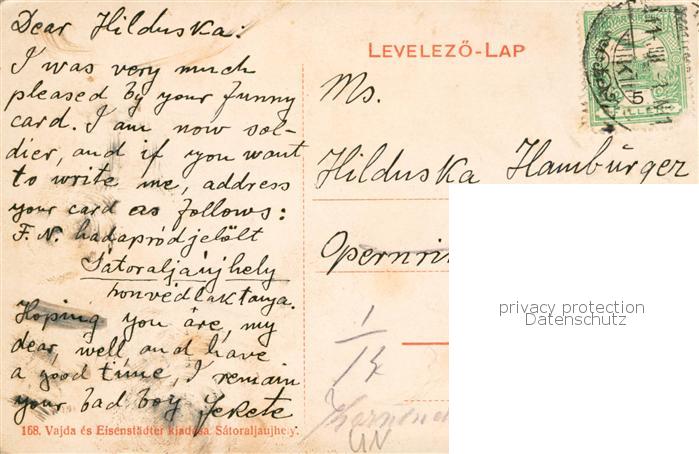 Dear Hilduska:
I was very much
pleased by your funny
card. I am now sol-
dier, and if you want
to write me, address
your card as follows:
F. N. hadapródjelölt
Sátoraljaújhely
honvédlaktanya.
Hoping you are, my
dear, well and have
a good time, I remain
your bad boy Fekete
168. Vajda és Eisenstädter kiadása, Sátoraljaujhely.
LEVELEZŐ-LAP
5
Ms.
Hilduska Hamburger
Opernri
1
14
privacy protection
Datenschutz